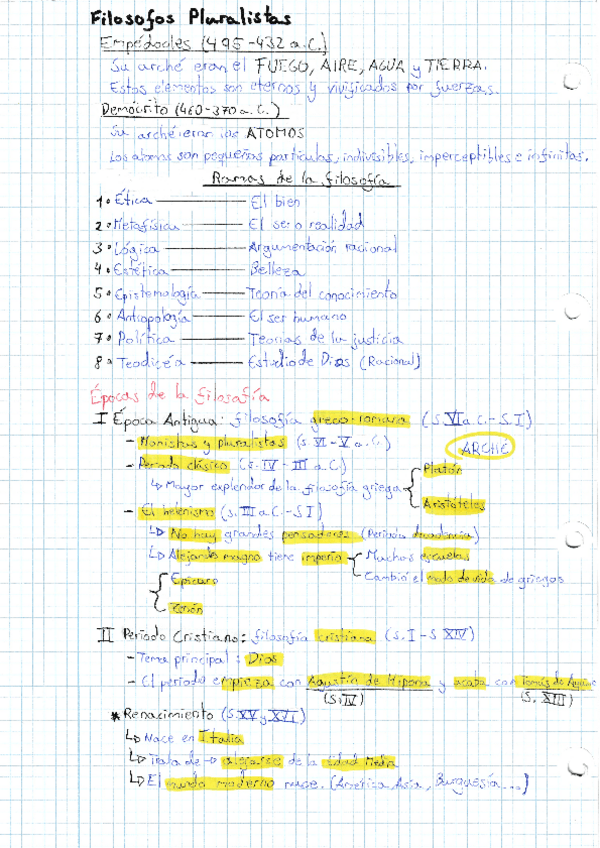 Filosofos Pluralistas
Empédocles (495-432 a.C.)
Su arché eran el FUEGO, AIRE, AGUA y TIERRA.
Estos elementos son eternos y vivificados por fuerzas.
Demócrito (460-370 a.C.)
Su arché eran los ATOMOS
Los atomos son pequeñas particulas, indivisibles, imperceptibles e infinitas.
Ramas de la filosofía
1. Ética — El bien
2. Metafísica — El ser o realidad
3. Lógica — Argumentación racional
4. Estética — Belleza
5. Epistemología — Teoría del conocimiento
6. Antropología — El ser humano
7. Política — Teorías de la justicia
8. Teodicéa — Estudio de Dios (Racional)
Épocas de la filosofía
I Época Antigua: filosofía greco-romana (S. VI a.C.- S. I)
- Monistas y pluralistas (s. VI - V a.C.) ARCHÉ
- Periodo clásico (s. IV - III a.C.)
↳ Mayor explendor de la filosofía griega { Platón
Aristóteles
- El helenismo (s. III a.C. - S I)
↳ No hay grandes pensadores (Periodo decadencia)
↳ Alejandro magno tiene imperio { Muchas escuelas
Cambió el modo de vida de griegos
{ Epicuro
Zenón
II Período Cristiano: filosofía cristiana (s. I - S XIV)
- Tema principal: Dios
- El período empieza con Agustín de Hipona y acaba con Tomás de Aquino
(S. IV) (S. XIII)
* Renacimiento (S. XV y XVI)
↳ Nace en Italia
↳ Trata de → alejarse de la Edad Media
↳ El mundo moderno nace. (América, Asia, Burguesía...)